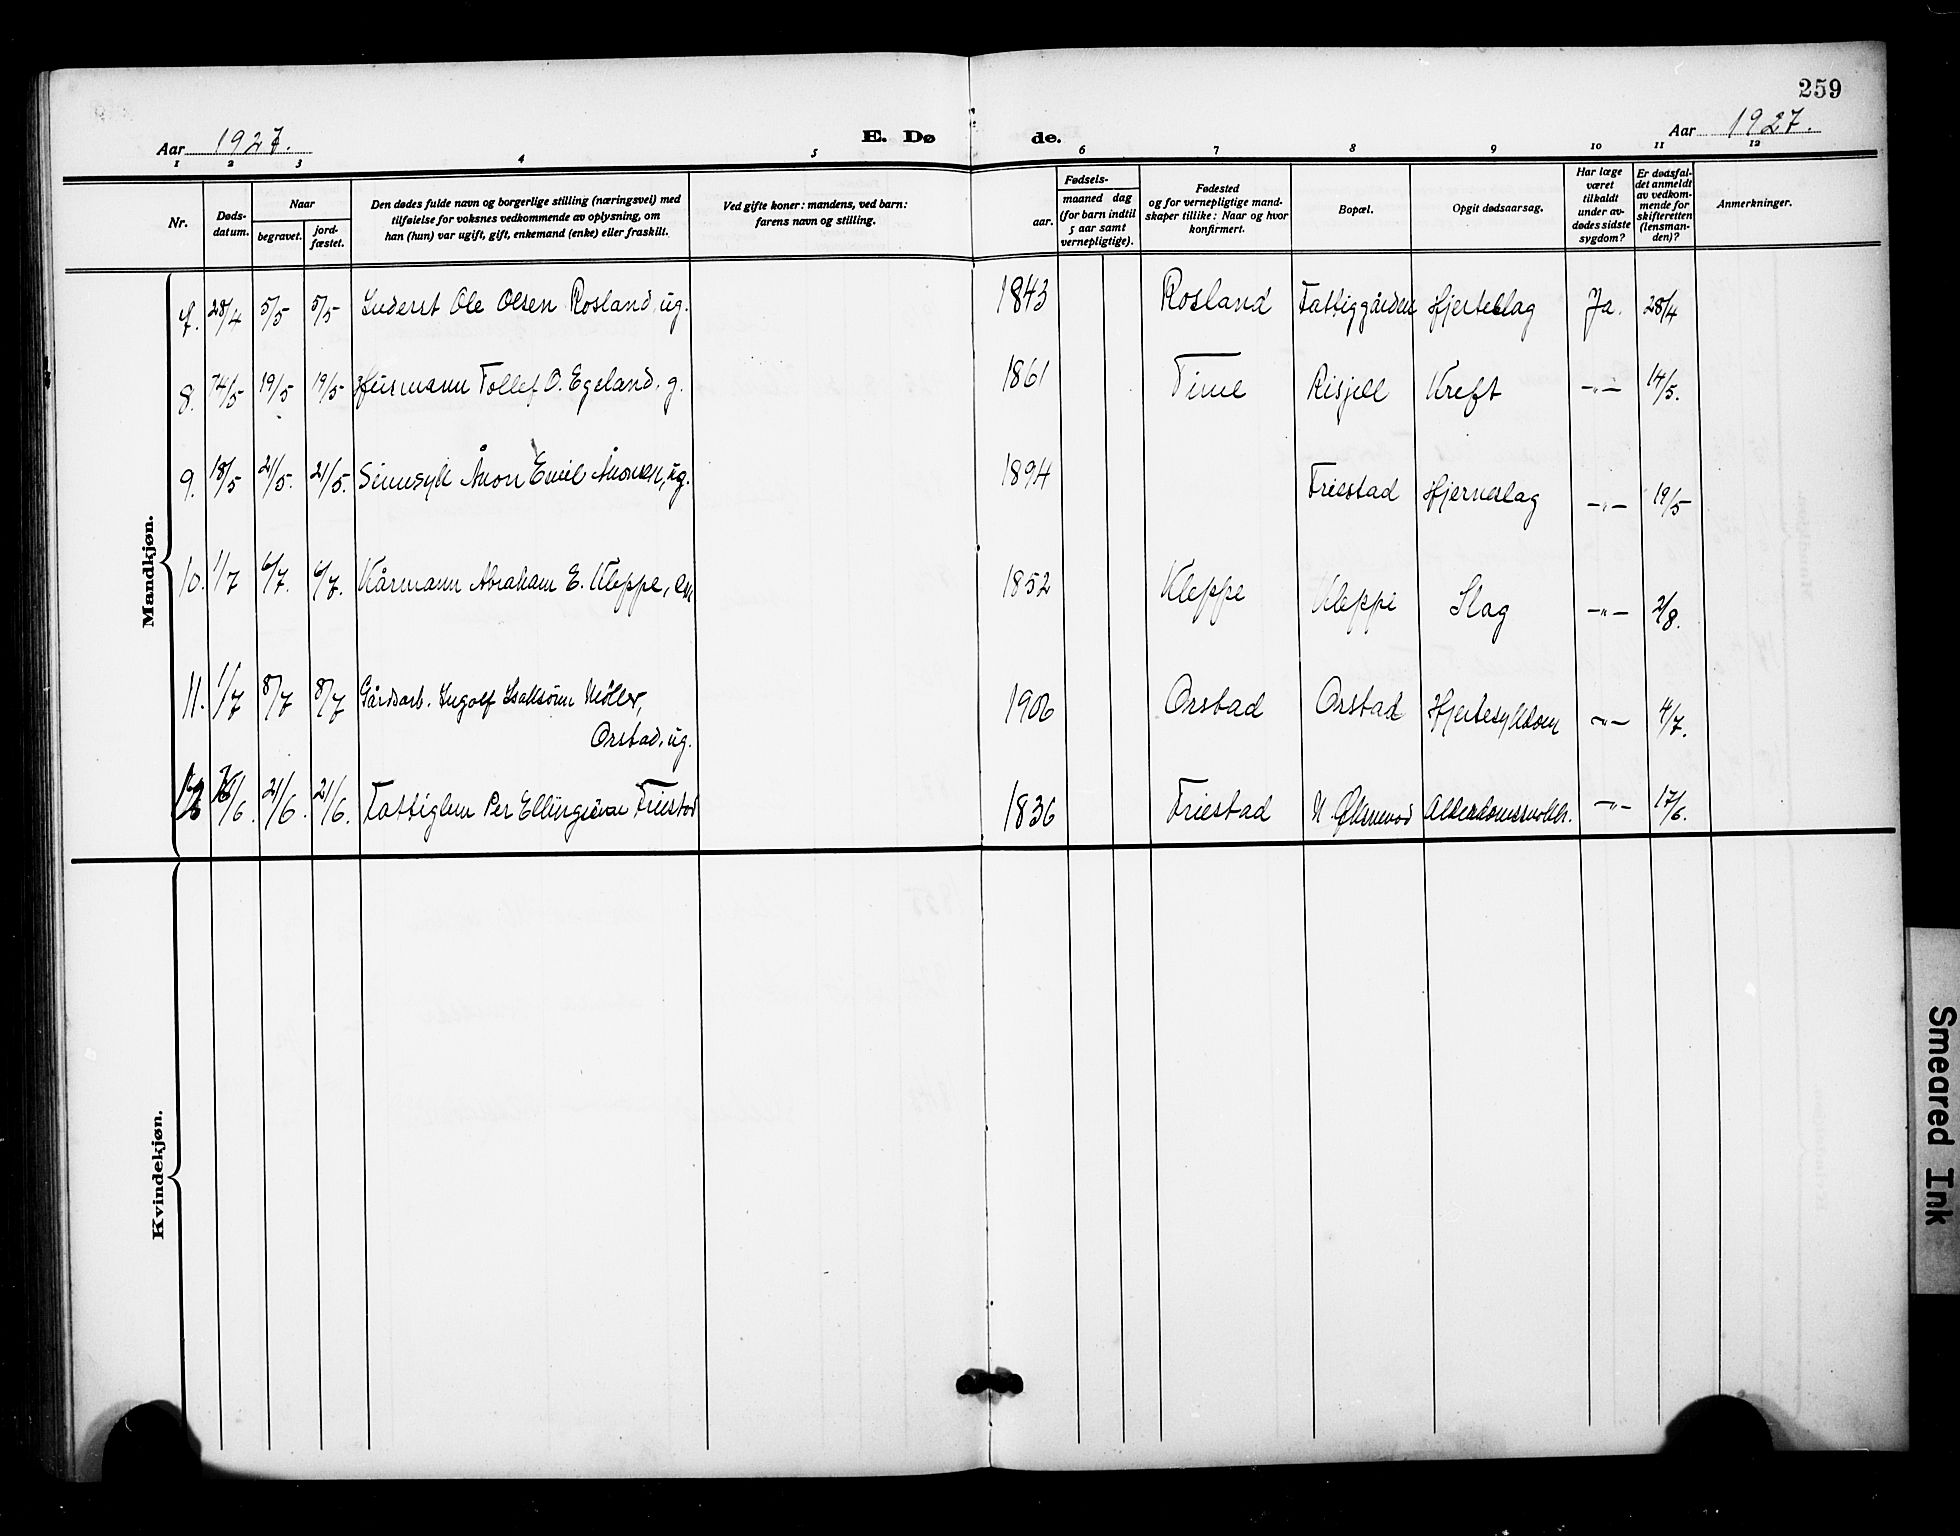 259
Aar 1927.
E. Dø
de.
Aar 1927.
1 2 3 4 5 6 7 8 9 10 11 12
Nr.
Døds-
datum.
Naar
begravet.
jord-
fæstet.
Den dødes fulde navn og borgerlige stilling (næringsvei) med
tilføielse for voksnes vedkommende av oplysning, om
han (hun) var ugift, gift, enkemand (enke) eller fraskilt.
Ved gifte koner: mandens, ved barn:
farens navn og stilling.
Fødsels-
aar.
maaned dag
(for barn indtil
5 aar samt
vernepligtige).
Fødested
og for vernepligtige mand-
skaper tillike: Naar og hvor
konfirmert.
Bopæl.
Opgit dødsaarsag.
Har læge
været
tilkaldt
under av-
dødes sidste
sygdom?
Er dødsfal-
det anmeldt
av vedkom-
mende for
skifteretten
(lensman-
den)?
Anmerkninger.
Mandkjøn.
7. 28/4 5/5 5/5 Inderst Ole Olsen Rosland, ug. 1843 Rosland Fattiggården Hjerteslag Ja. 28/4
8. 14/5 19/5 19/5 Husmann Tollef O. Egeland, g. 1861 Time Risjell Kreft -"- 14/5.
9. 18/5 21/5. 21/5. Sinnsyk Ånon Emil Ånonsen, ug. 1894 Friestad Hjerneslag -"- 19/5
10. 1/7 6/7. 6/7. Kårmann Abraham E. Kleppe, 1852 Kleppe Kleppe Slag -"- 2/8.
11. 1/7 8/7 8/7 Gårdsarb. Ingolf Isaksönn Möller,
Orstad, ug. 1906 Orstad Orstad Hjertesykdom -"- 4/7.
12 /6. 21/6. 21/6. Fattiglem Per Ellingsönn Friestad 1836 Friestad N. Øksnevad Alderdomssvakh. -"- 17/6.
Kvindekjøn.
Smeared Ink